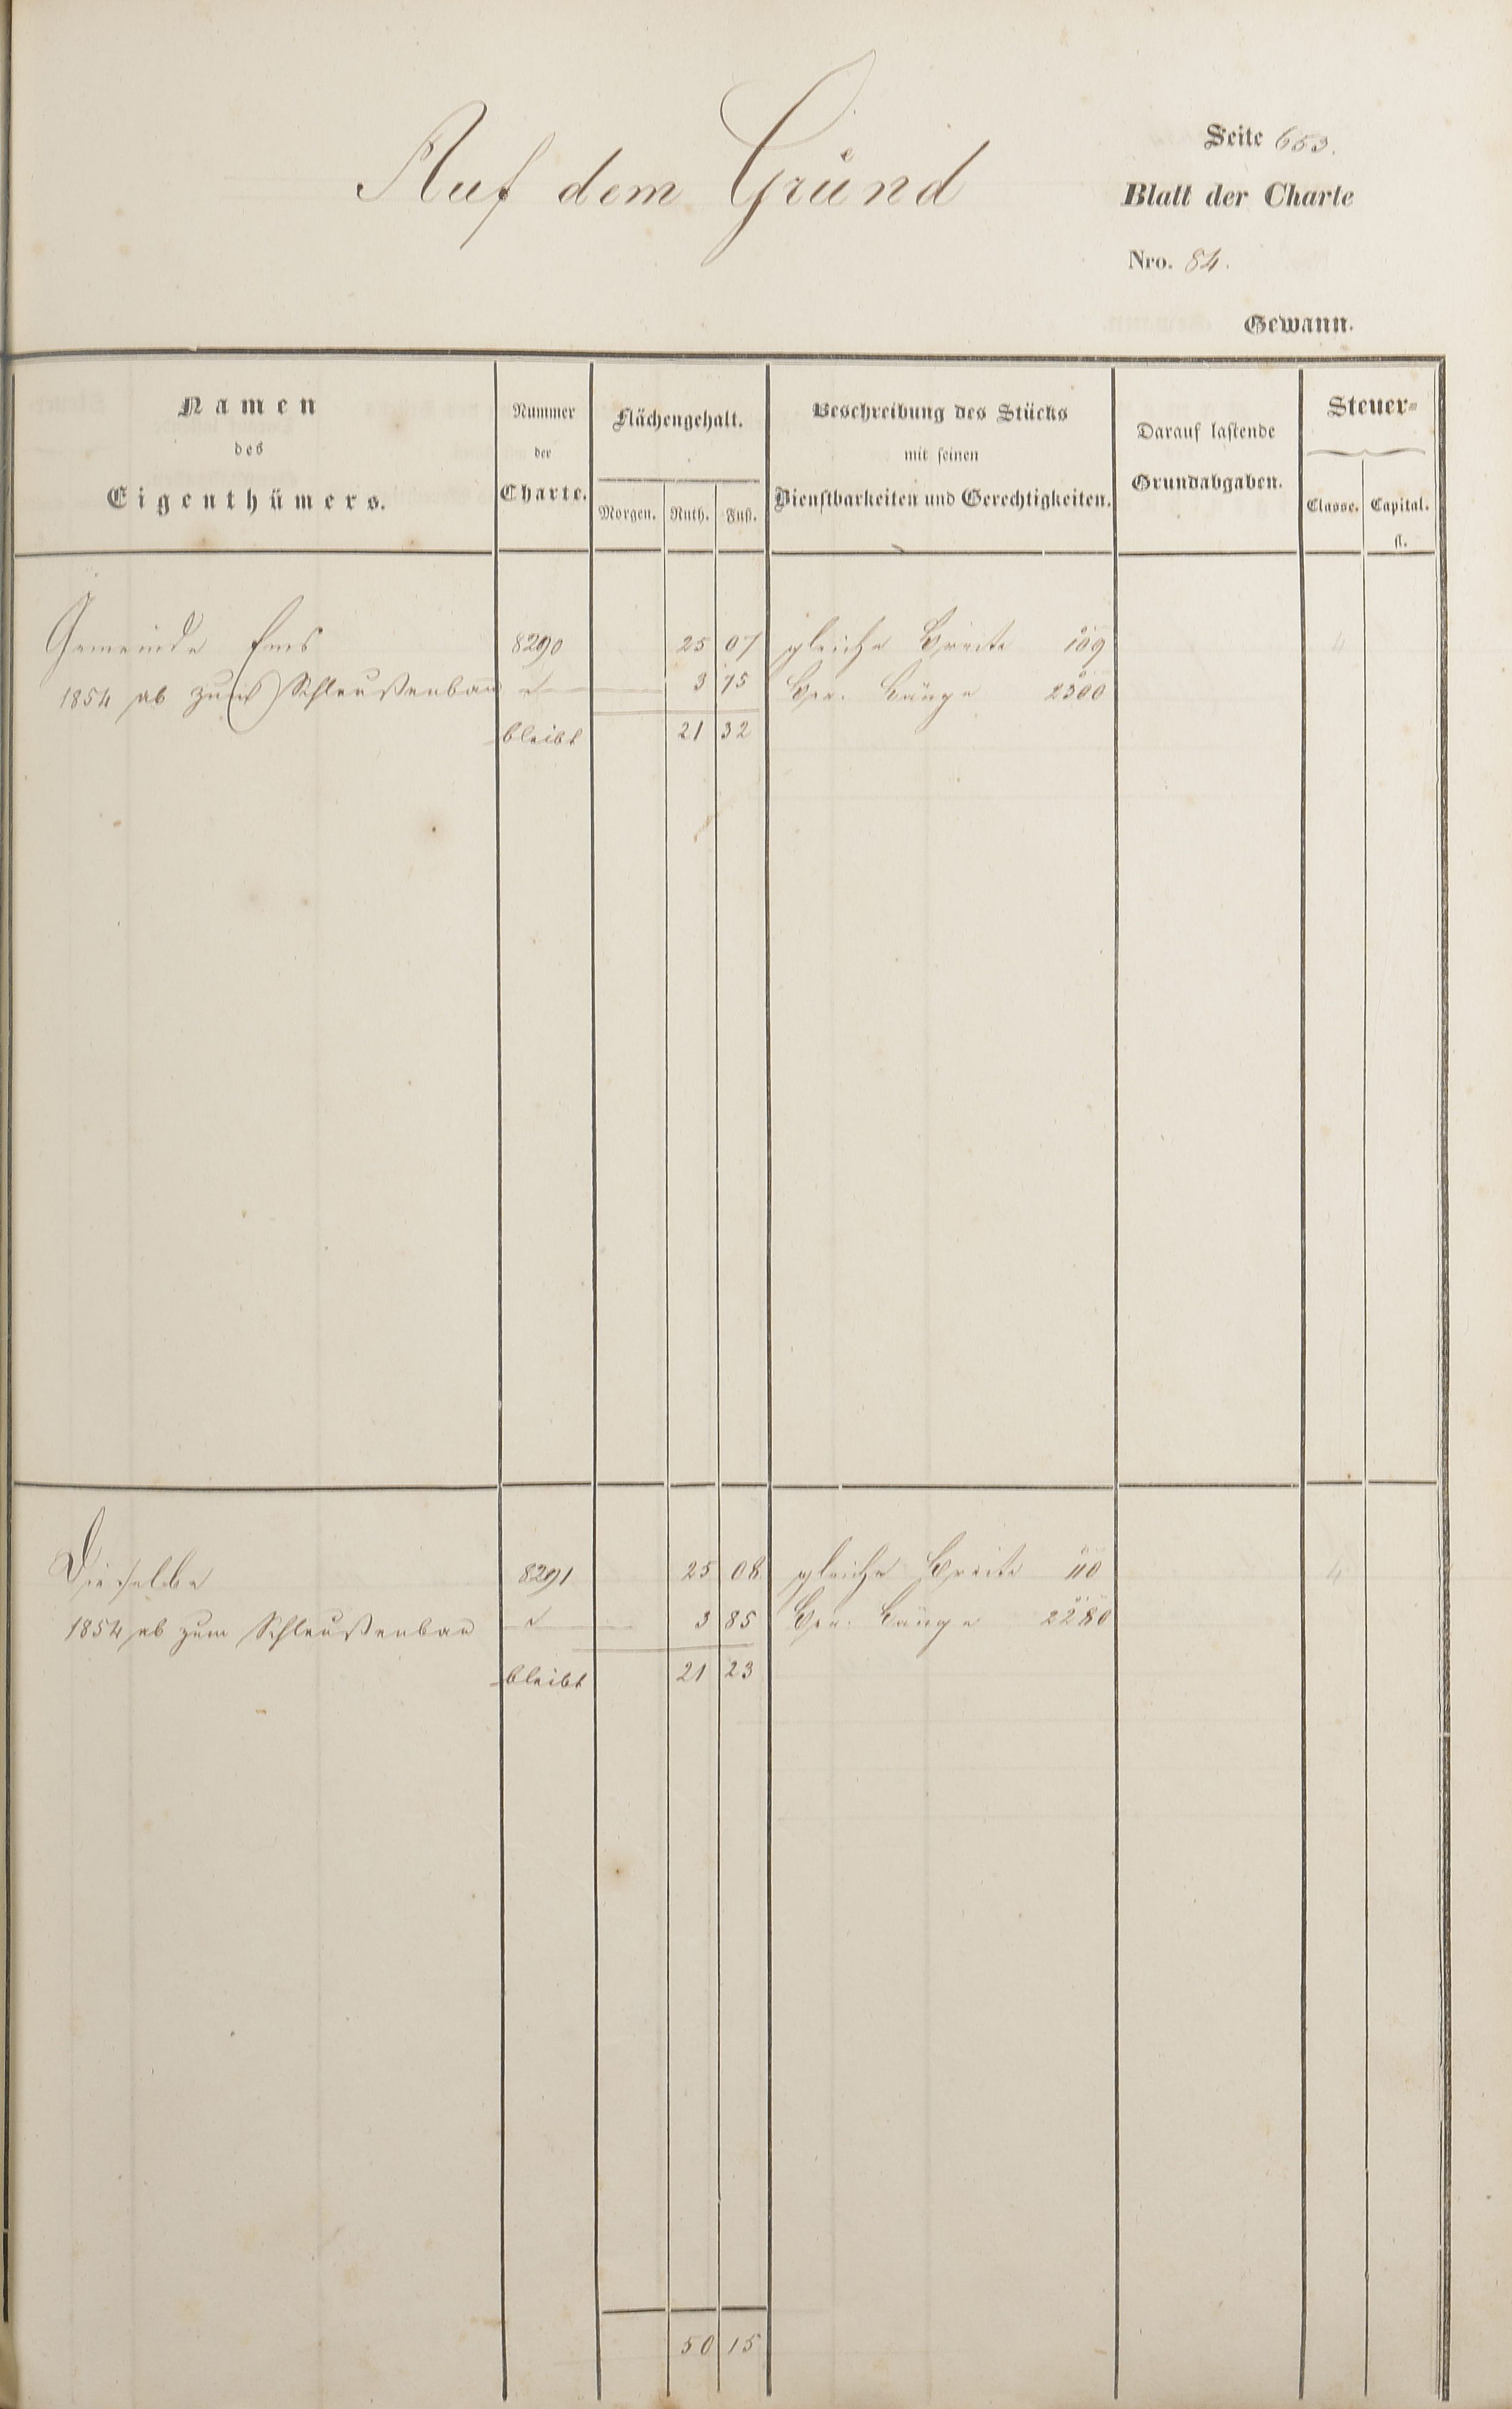 Auf dem Gründ
Seite 653.
Blatt der Charte
Nro. 84.
Gewann.
Namen
des
Eigenthümers.
Nummer
der
Charte.
Flächengehalt.
Morgen. Ruth. Fuß.
Beschreibung des Stücks
mit seinen
Dienstbarkeiten und Gerechtigkeiten.
Darauf lastende
Grundabgaben.
Steuer-
Classe. Capital.
fl.
Gemeinde Ems 8290 25 07 gleiche Breite 109 4
1854 ab zum Schleußenbau 3 75 Länge 2300
bleibt 21 32
Dieselbe 8291 25 08 gleiche Breite 110 4
1854 ab zum Schleußenbau 3 85 Länge 2280
bleibt 21 23
50 15